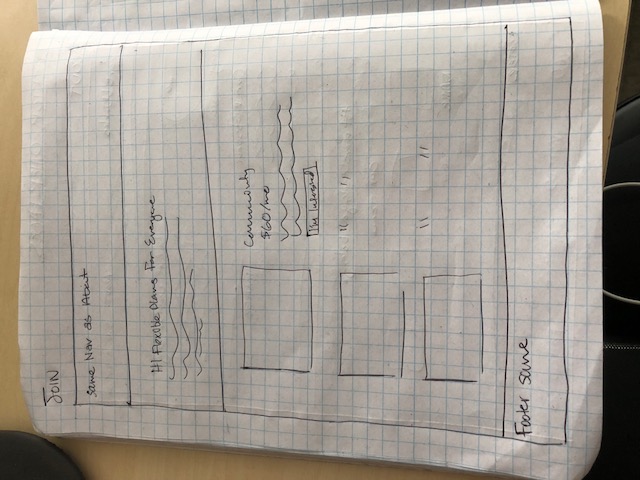 JOIN
Same Nav as About
H1 Flexible Plans For Everyone
Community
$60/mo
I'm Interested
" "
" "
Footer same